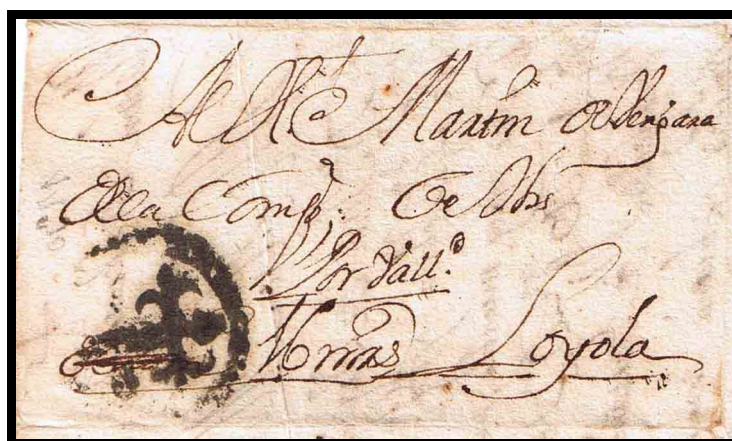 Al H.º Martin de Vergara
de la Comp.ª de Jhs
Por Vall.d
Loyola